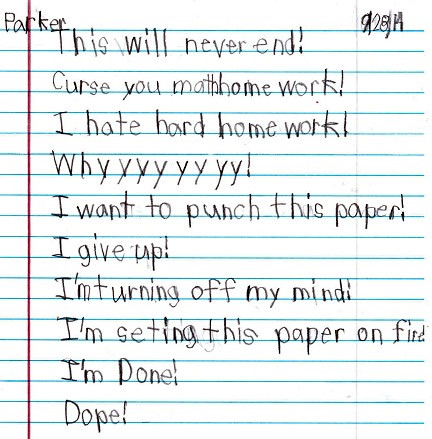 Parker 9/28/11
This will never end!
Curse you math home work!
I hate hard home work!
Whyyyyyyyy!
I want to punch this paper!
I give up!
I'm turning off my mind!
I'm seting this paper on fire
I'm Done!
Dope!